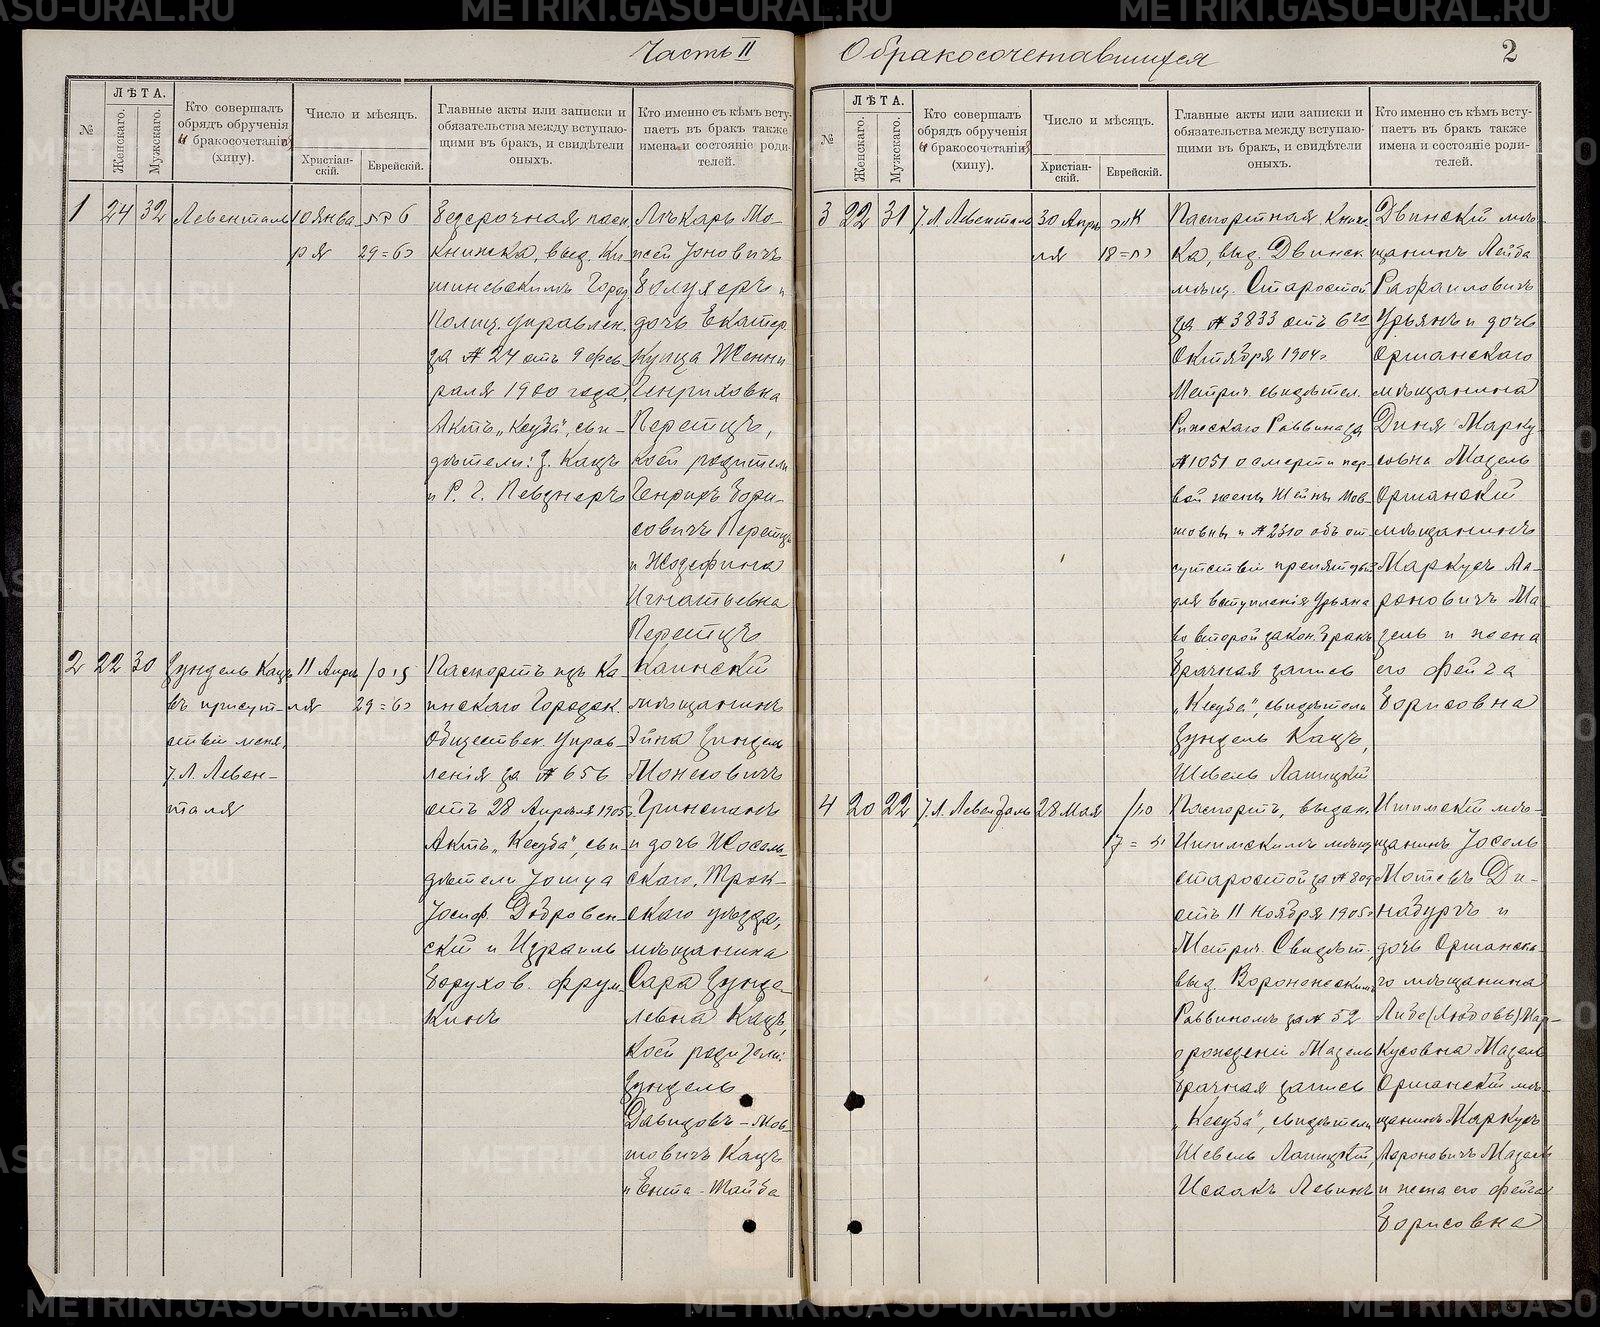 METRIKI.GASO-URAL.RU
Часть II
О бракосочетавшихся
2
№
ЛѢТА.
Женскаго.
Мужскаго.
Кто совершалъ
обрядъ обрученія
и бракосочетанія
(хипу).
Число и мѣсяцъ.
Христіан-
скій.
Еврейскій.
Главные акты или записки и
обязательства между вступаю-
щими въ бракъ, и свидѣтели
оныхъ.
Кто именно съ кѣмъ всту-
паетъ въ бракъ также
имена и состояніе роди-
телей.
1
24
32
Левенталь
10 Янва-
ря
29=
Безсрочная пасп.
книжка, выд. Ки-
шиневскимъ Город.
Полиц. Управлен.
за № 24 отъ 9 фев-
раля 1900 года.
Актъ „Кесуба", сви-
дѣтели: З. Кацъ
и Р. Г. Певзнеръ
Лѣкарь Мо-
исей Іоновичъ
и
дочь Екатер.
купца Женни
Генриховна
Перетцъ,
коей родители
Генрихъ Бори-
совичъ Перетцъ
и Жозефина
Игнатьевна
Перетцъ
2
22
30
Зундель Кацъ
въ присут-
ствіи меня,
І. Л. Левен-
таля
11 Апрѣ-
ля
29=
Паспортъ изъ Ка-
инскаго Городск.
Обществен. Управ-
ленія за № 656
отъ 28 Апрѣля 1905 г.
Актъ „Кесуба", сви-
дѣтели Іошуа
Іосиф. Добровен-
скій и Израиль
Борухов. Фрум-
кинъ
Каинскій
мѣщанинъ
Монесовичъ
Гринспанъ
и дочь Жосль-
скаго, Трок-
скаго уѣзда,
мѣщанина
Сара Зунде-
левна Кацъ,
коей родители:
Зундель
Давидовъ-Мов-
шовичъ Кацъ
и Ента-Тайба
№
ЛѢТА.
Женскаго.
Мужскаго.
Кто совершалъ
обрядъ обрученія
и бракосочетанія
(хипу).
Число и мѣсяцъ.
Христіан-
скій.
Еврейскій.
Главные акты или записки и
обязательства между вступаю-
щими въ бракъ, и свидѣтели
оныхъ.
Кто именно съ кѣмъ всту-
паетъ въ бракъ также
имена и состояніе роди-
телей.
3
22
31
І. Л. Левенталь
30 Апрѣ-
ля
18=
Паспортная книж-
ка, выд. Двинск.
мѣщ. Старостой
за № 3833 отъ 6го
Октября 1904 г.
Метрич. свидѣтел.
Рижскаго Раввина за
№ 1051 о смерти пер-
вой жены Шейны Мов-
шовны и № 2310 объ от-
сутствіи препятствій
для вступленія Урьяна
во второй закон. бракъ
Брачная запись
„Кесуба", свидѣтели
Зундель Кацъ,
Шевель Лапицкій
Двинскій мѣ-
щанинъ Лейба
Рафаиловичъ
Урьянъ и дочь
Оршанскаго
мѣщанина
Диня Марку-
совна Мазель
Оршанскій
мѣщанинъ
Маркусъ Аа-
роновичъ Ма-
зель и жена
его Фейга
Борисовна
4
20
22
І. Л. Левенталь
28 Мая
17=
Паспортъ, выдан.
Ишимскимъ мѣщ.
старостой за № 809
отъ 11 Ноября 1905 г.
Метрич. Свидѣт.,
выд. Воронежскимъ
Раввиномъ за № 52
о рожденіи Мазель
Брачная запись
„Кесуба", свидѣтели
Шевель Лапицкій,
Исаакъ Левинъ
Ишимскій мѣ-
щанинъ Іосель
Мотевъ Ди-
набургъ и
дочь Оршанска-
го мѣщанина
Либе (Любовь) Мар-
кусовна Мазель
Оршанскій мѣ-
щанинъ Маркусъ
Аароновичъ Мазель
и жена его Фейга
Борисовна
METRIKI.GASO-URAL.RU